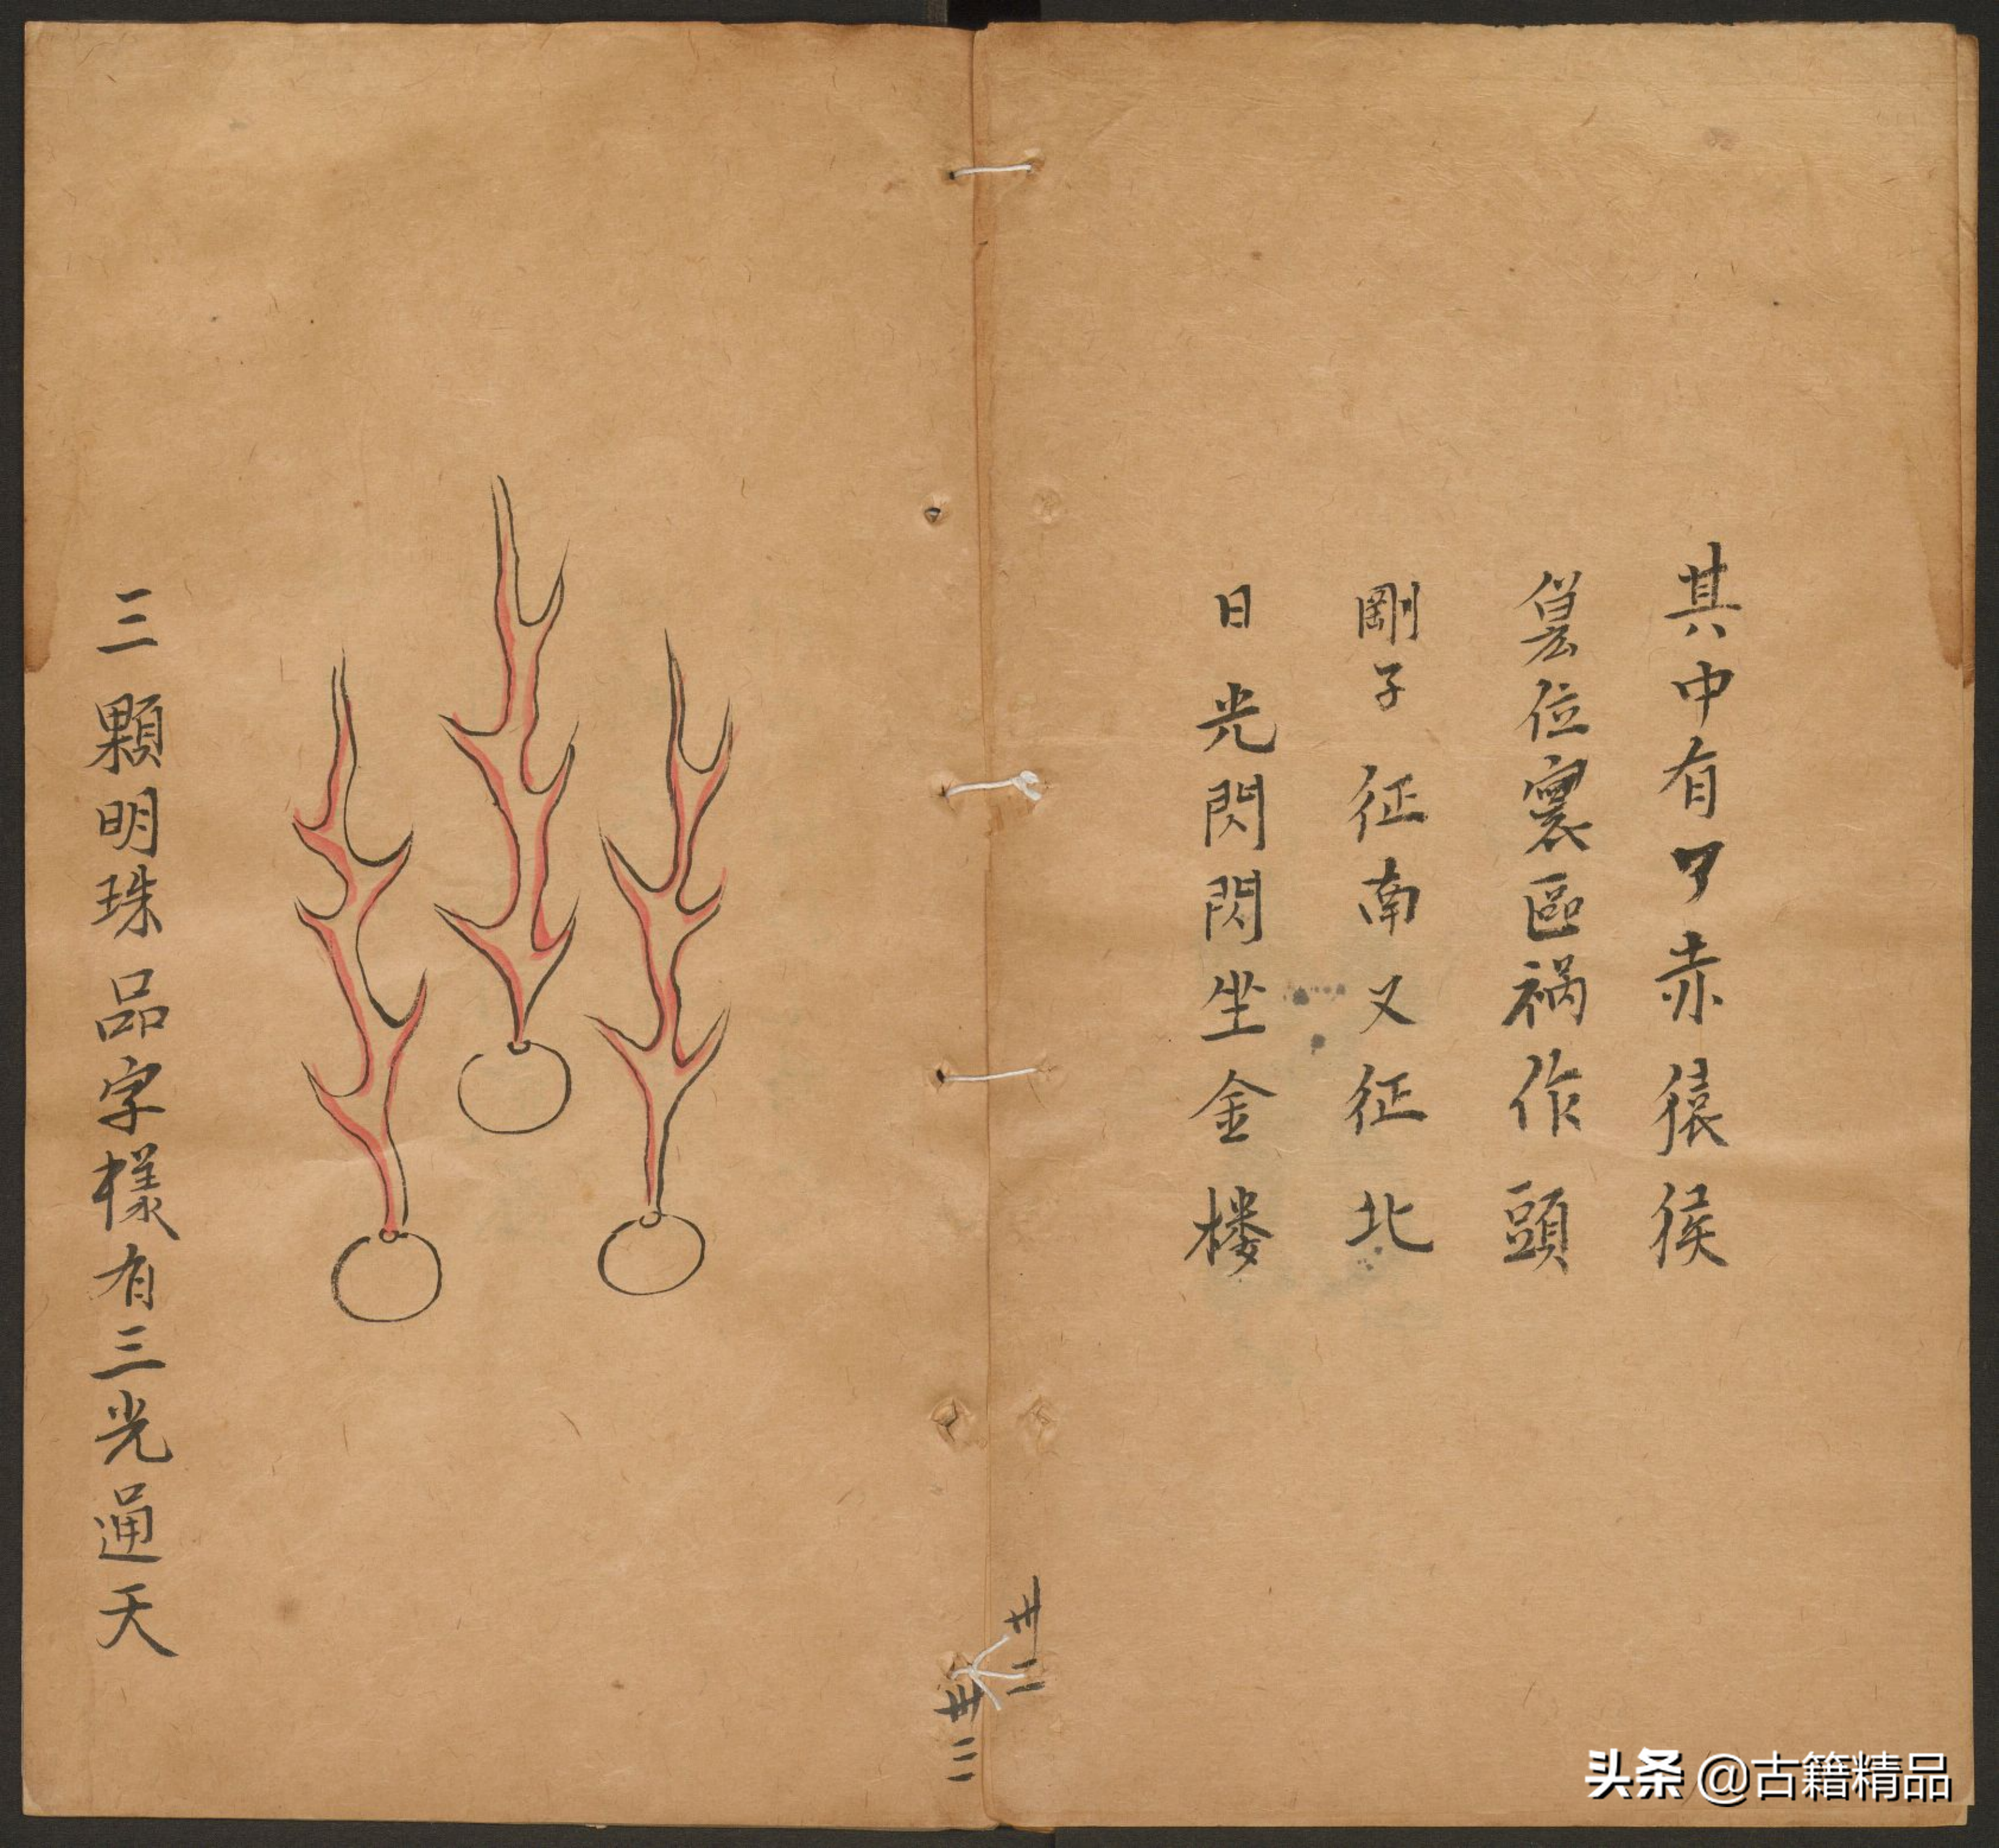 其中有了赤猿猴
位裏區祸作頭
剛子征南又征北
日光閃閃坐金楼
卅二
三顆明珠品字樣有三光通天
卅三
头条 @古籍精品